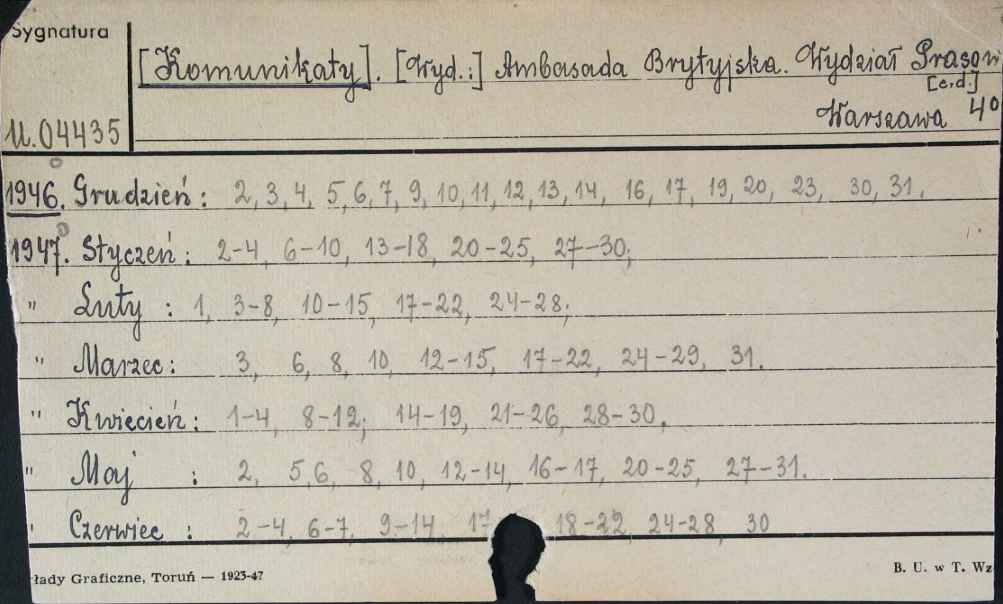 Sygnatura
[Komunikaty]. [Wyd.:] Ambasada Brytyjska. Wydział Prasow
[c.d.]
Warszawa 4°
U.04435
1946. Grudzień: 2, 3, 4, 5, 6, 7, 9, 10, 11, 12, 13, 14, 16, 17, 19, 20, 23, 30, 31.
1947. Styczeń: 2-4, 6-10, 13-18, 20-25, 27-30;
" Luty : 1, 3-8, 10-15, 17-22, 24-28;
" Marzec: 3, 6, 8, 10, 12-15, 17-22, 24-29, 31.
" Kwiecień: 1-4, 8-12; 14-19, 21-26, 28-30.
" Maj : 2, 5, 6, 8, 10, 12-14, 16-17, 20-25, 27-31.
" Czerwiec : 2-4, 6-7, 9-14, 17 18-22, 24-28, 30
łady Graficzne, Toruń — 1923-47
B. U. w T. Wz